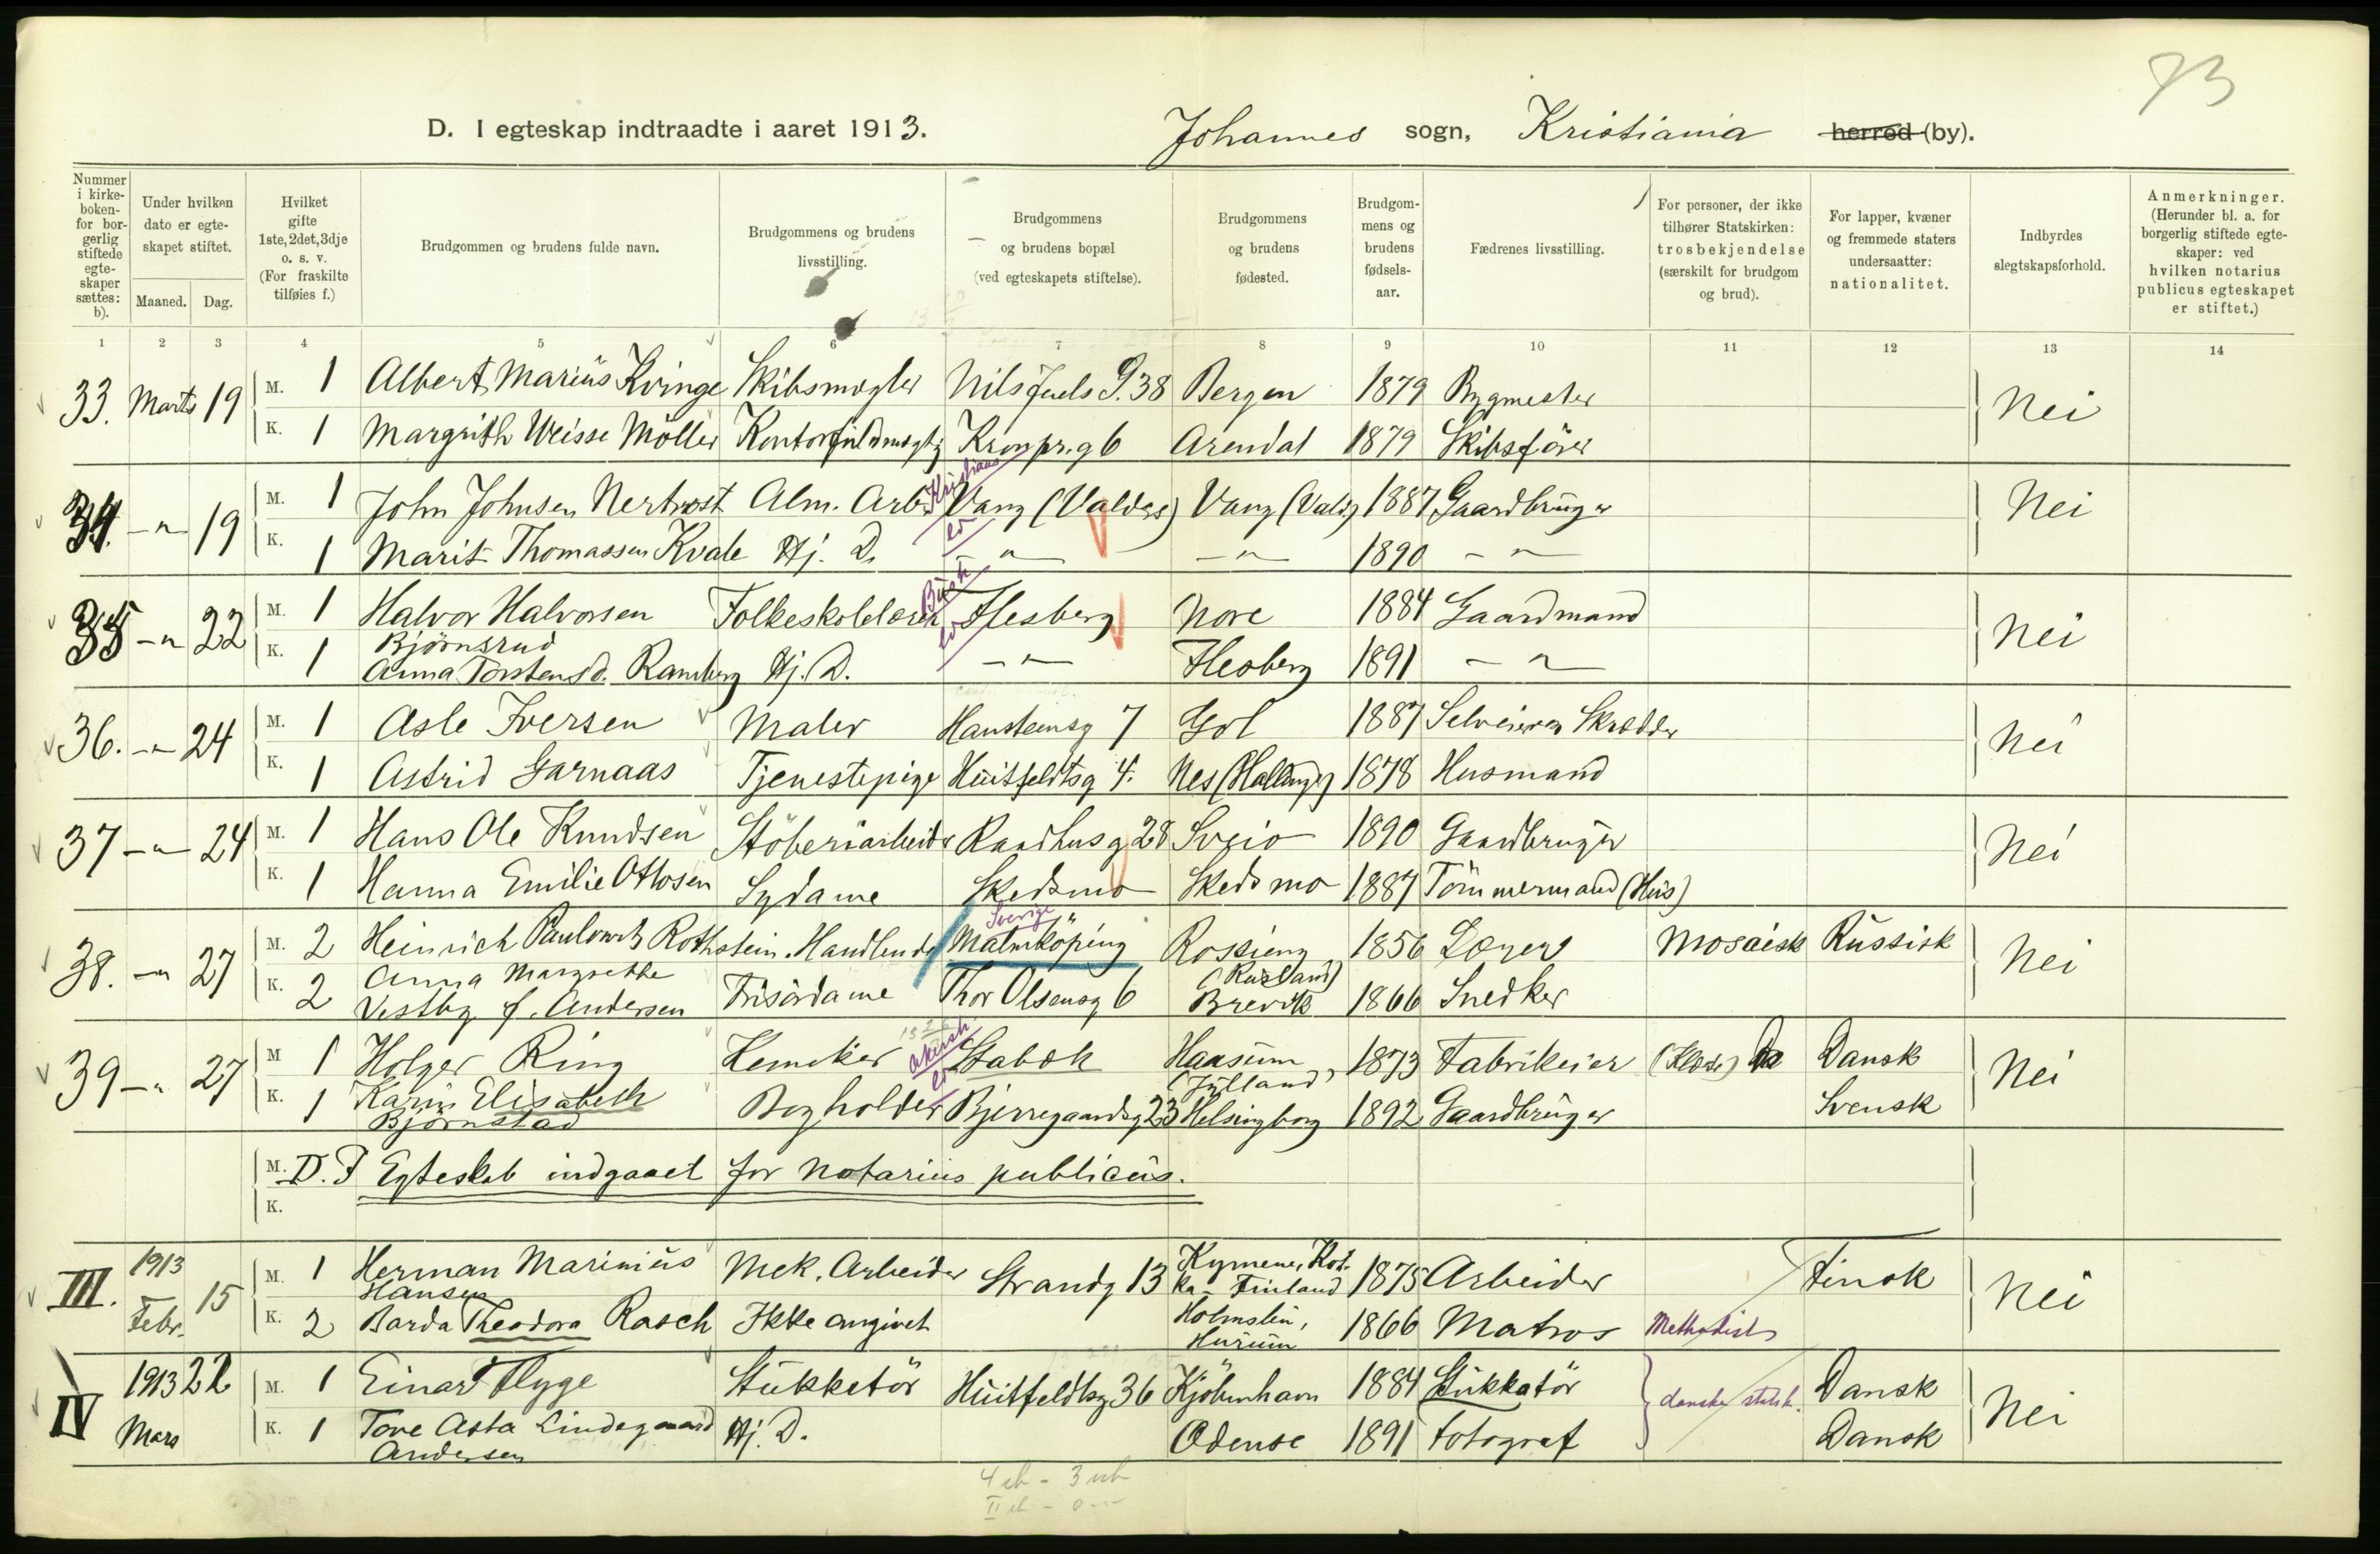 73
D. I egteskap indtraadte i aaret 1913. Johannes sogn, Kristiania herred (by).
Nummer i kirke-boken- for bor-gerlig stiftede egte-skaper sættes: b).
Under hvilken dato er egte-skapet stiftet.
Maaned. Dag.
Hvilket gifte 1ste, 2det, 3dje o. s. v. (For fraskilte tilføies f.)
Brudgommen og brudens fulde navn.
Brudgommens og brudens livsstilling.
Brudgommens og brudens bopæl (ved egteskapets stiftelse).
Brudgommens og brudens fødested.
Brudgom-mens og brudens fødsels-aar.
Fædrenes livsstilling.
For personer, der ikke tilhører Statskirken: trosbekjendelse (særskilt for brudgom og brud).
For lapper, kvæner og fremmede staters undersaatter: nationalitet.
Indbyrdes slegtskapsforhold.
Anmerkninger. (Herunder bl. a. for borgerlig stiftede egte-skaper: ved hvilken notarius publicus egteskapet er stiftet.)
1 2 3 4 5 6 7 8 9 10 11 12 13 14
33. Marts 19 M. 1 Albert Marius Kvinge Skibsmægler Nils Juels G. 38 Bergen 1879 Bygmester Nei
K. 1 Margrith Weisse Möller Kontorfuldmægtg Kronpr.g 6 Arendal 1879 Skibsförer
34. -"- 19 M. 1 John Johnsen Nertrost Alm. Arb. Kristians Vang (Valders) Vang (Vald) 1887 Gaardbruger Nei
K. 1 Marit Thomassen Kvale Hj. D. -"- -"- 1890 -"-
35 -"- 22 M. 1 Halvor Halvorsen Björnsrud Folkeskolelærer Busk Flesberg Nore 1884 Gaardmand Nei
K. 1 Anna Torstensd. Ramberg Hj. D. -"- Flesberg 1891 -"-
36. -"- 24 M. 1 Asle Iversen Maler Hansteensg 7 Gol 1887 Selveier og Skrædder Nei
K. 1 Astrid Garnaas Tjenestepige Huitfeldtsg 4. Nes (Hallingd) 1878 Husmand
37 -"- 24 M. 1 Hans Ole Knudsen Stöberiarbeider Raadhusg 28 Sveio 1890 Gaardbruger Nei
K. 1 Hanna Emilie Ottosen Sydame Skedsmo Skedsmo 1887 Tömmermand (Hus)
38. -"- 27 M. 2 Heinrich Paulowitz Rothstein. Handlende Sverige Malmköping Rossieng (Rusland) 1856 Læge Mosaisk Russisk Nei
K. 2 Anna Margrethe Vestby f. Andersen Frisördame Thor Olsensg 6 Brevik 1866 Snedker
39 -"- 27 M 1 Holger Ring Kemiker Akersh Stabæk Haasum (Jylland) 1873 Fabrikeier Dansk Nei
K. 1 Karin Elisabeth Björnstad Bogholder Bjerregaardsg 23 Helsingborg 1892 Gaardbruger Svensk
M. D. F Egteskab indgaaet for notarius publicus.
K.
III. 1913 Febr. 15 M. 1 Herman Marinius Hansen Mek. Arbeider Strandg 13 Kymene, Kotka - Finland 1875 Arbeider Finsk Nei
K. 2 Barda Theodora Rasch Ikke angivet Holmslin, Hurum 1866 Matros Methodist
IV 1913 Mars 22 M. 1 Einar Flyge Stukkatör Huitfeldtsg 36 Kjöbenhavn 1884 Stukkatör danske statsk. Dansk Nei
K. 1 Tove Asta Lindegaard Andersen Hj. D. Odense 1891 Fotograf Dansk